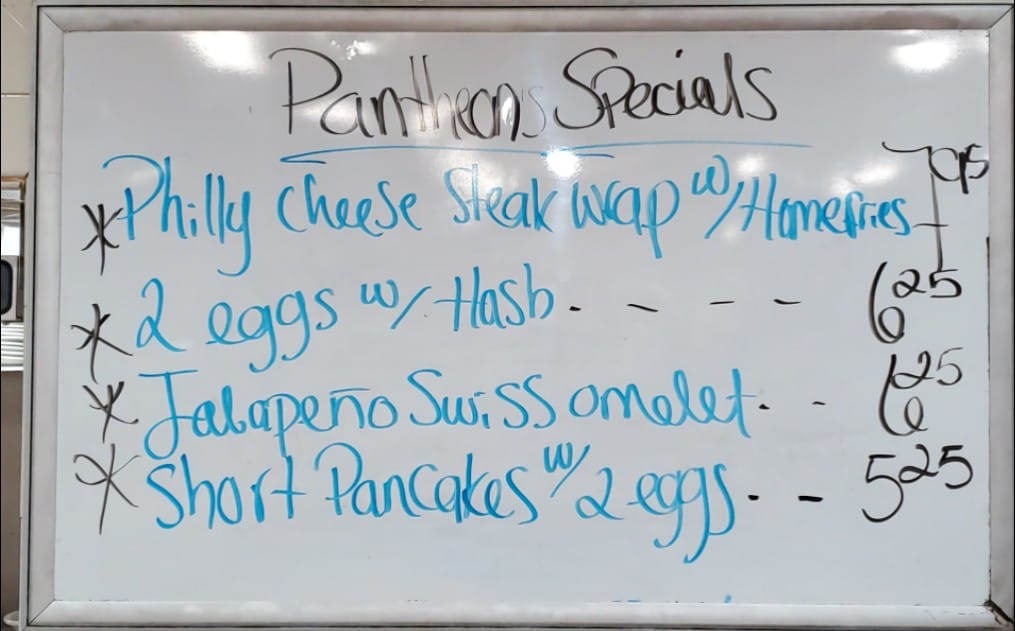 Pantheon's Specials
* Philly cheese steak wrap w/ Homefries - 7 95
* 2 eggs w/ Hash - - - - 6 25
* Jalapeño Swiss omelet - - 6 25
* Short Pancakes w/ 2 eggs - - 5 25